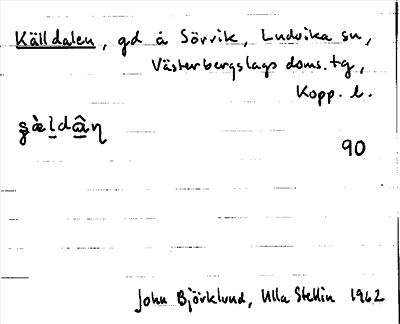 Källdalen, gd å Sörvik, Ludvika sn,
Västerbergslags doms. tg,
Kopp. l.
90
John Björklund, Ulla Stellin 1962